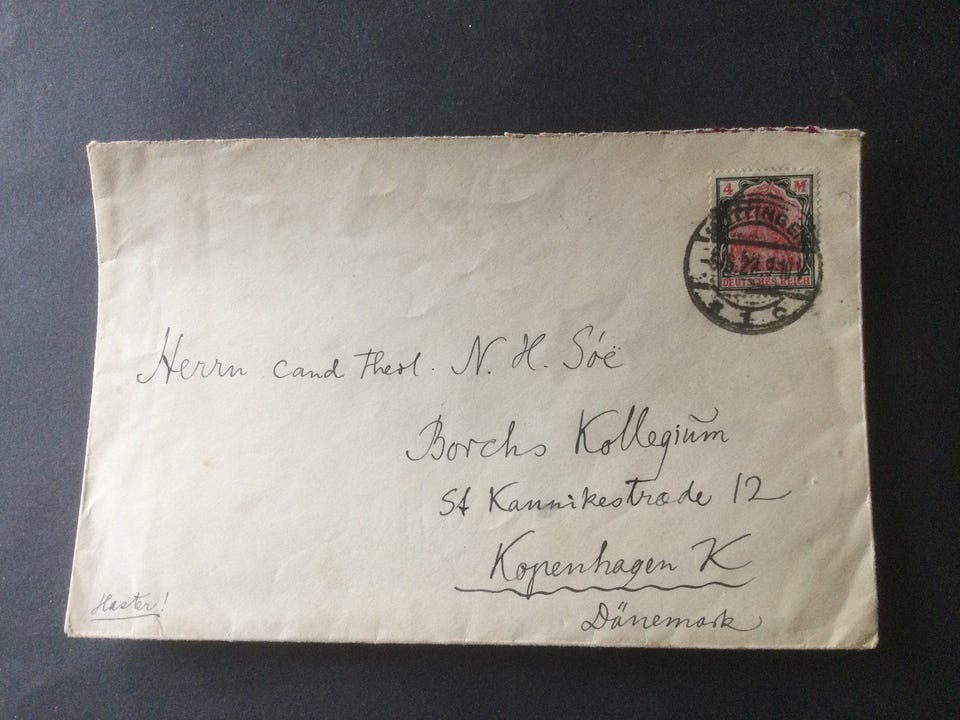 4 M
DEUTSCHES REICH
Herrn cand Theol. N. H. Söë
Borchs Kollegium
St Kannikestræde 12
Kopenhagen K
Dänemark
Haster!